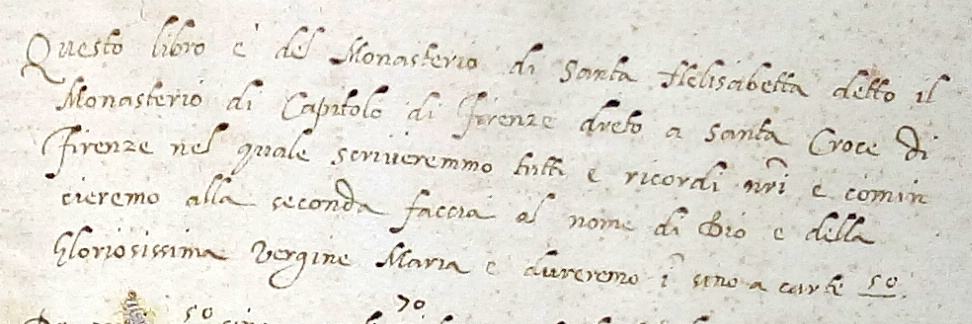 Questo libro è del Monasterio di Santa Helisabetta detto il
Monasterio di Capitolo di Firenze dreto a Santa Croce di
Firenze nel quale scriveremmo tutti e ricordi nr̃i e comin
cieremo alla seconda faccia al nome di Dio e della
Gloriosissima Vergine Maria e dureremo ĩ uno a carte 50.
50 70